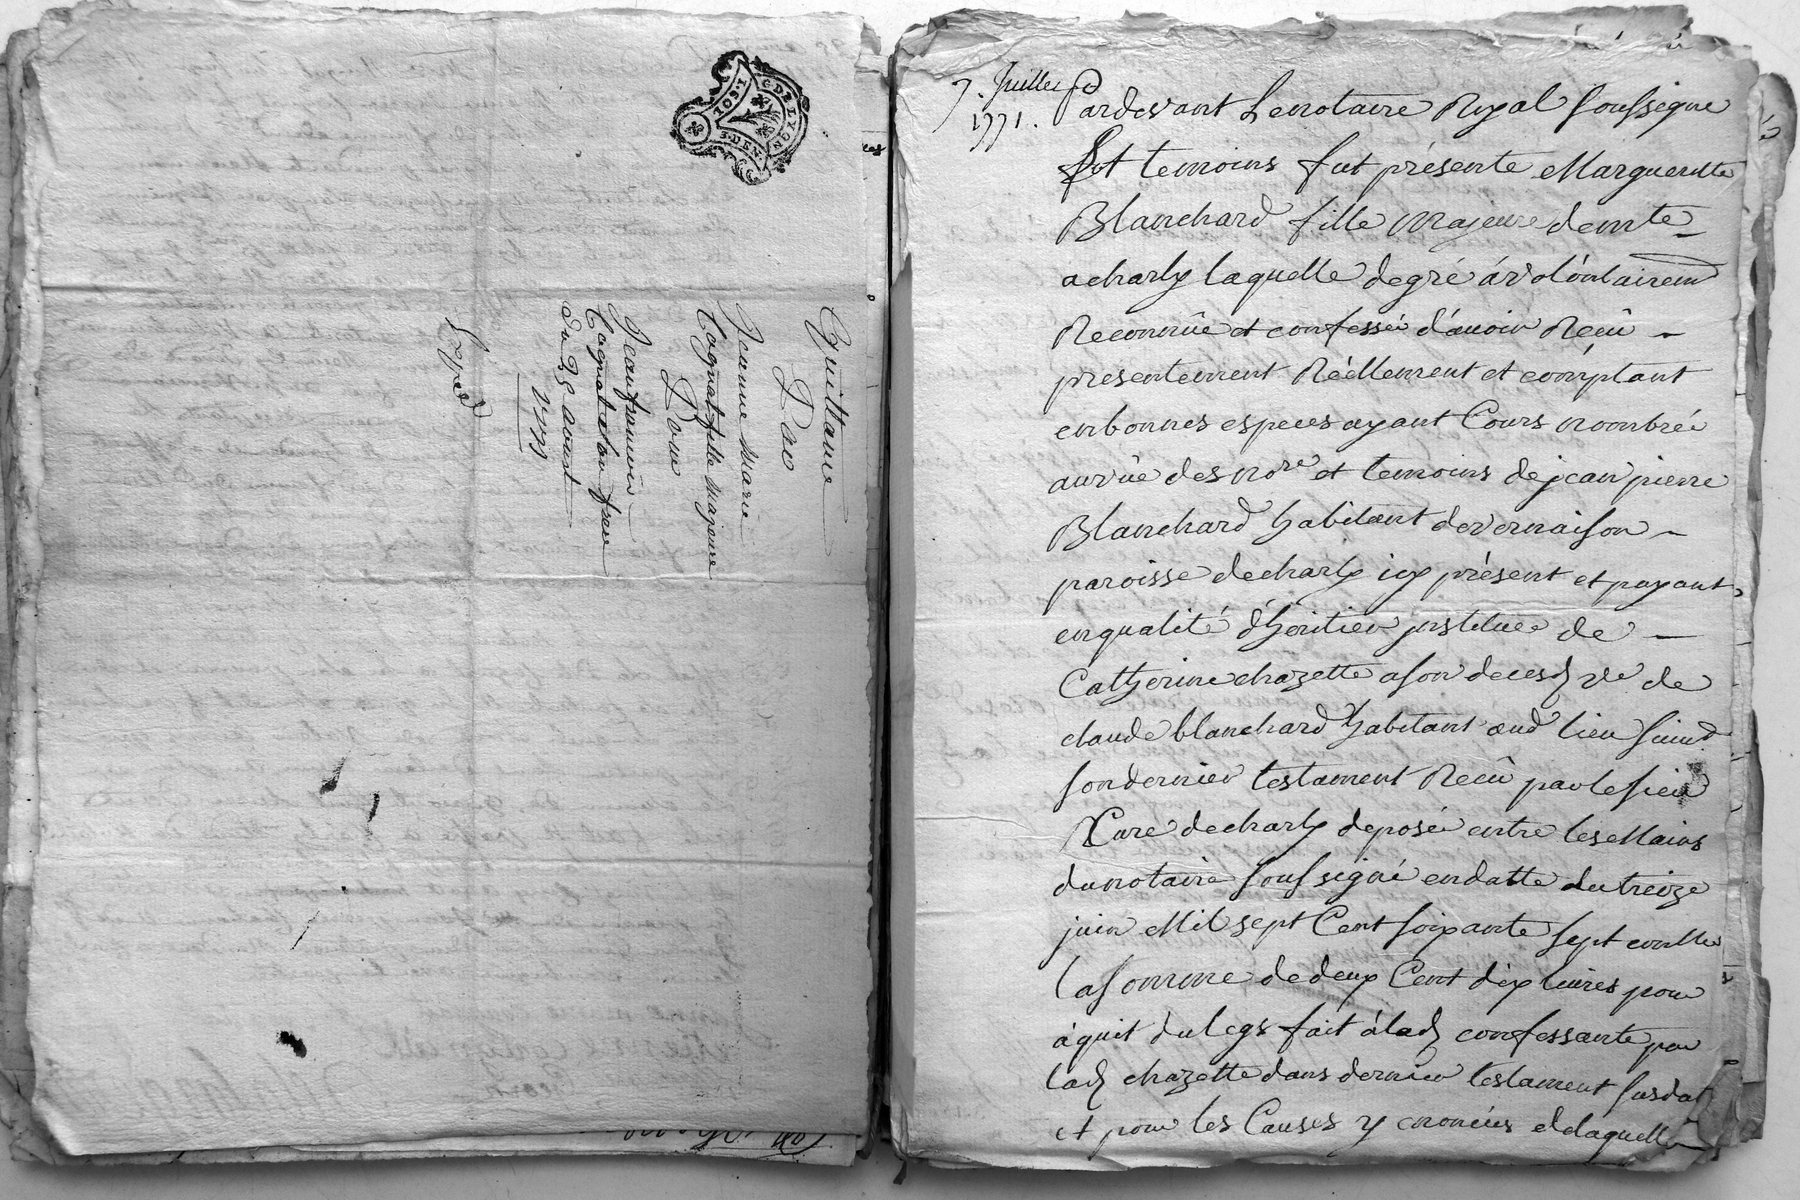 G. DE LYON
3. DEN.
Quittance
Par
Jeanne Marie
Cognat fille majeure
Pour
Jean francois
Cognat a son frere
du 25 aoust
1771
Exped
7. Juillet
1771.
Pardevant Le notaire Royal soussigne
Et temoins fut présente Margueritte
Blanchard fille majeure demte
a charly laquelle de gré á volontairemt
Reconnüe et confessé d'auoir Reçû
presentement Réellement et comptant
en bonnes especes ayant Cours nombrée
au vüe des nore et temoins de jean pierre
Blanchard habitant de vernaison
paroisse de charly icy présent et payant
en qualité d'heritier institué de
Catherine chazette a son deces ve de
claude blanchard habitant aud lieu suivt
son dernier testament Reçû par le sieur
Curé de charly deposé entre les Mains
du notaire soussigné en datte du treize
juin Mil sept Cent soixante sept
la somme de deux Cent dix liures pour
áquit du legs fait á lad confessante par
lad chazette dans dernier testament susdat
et pour les Causes y enonceés de laquelle